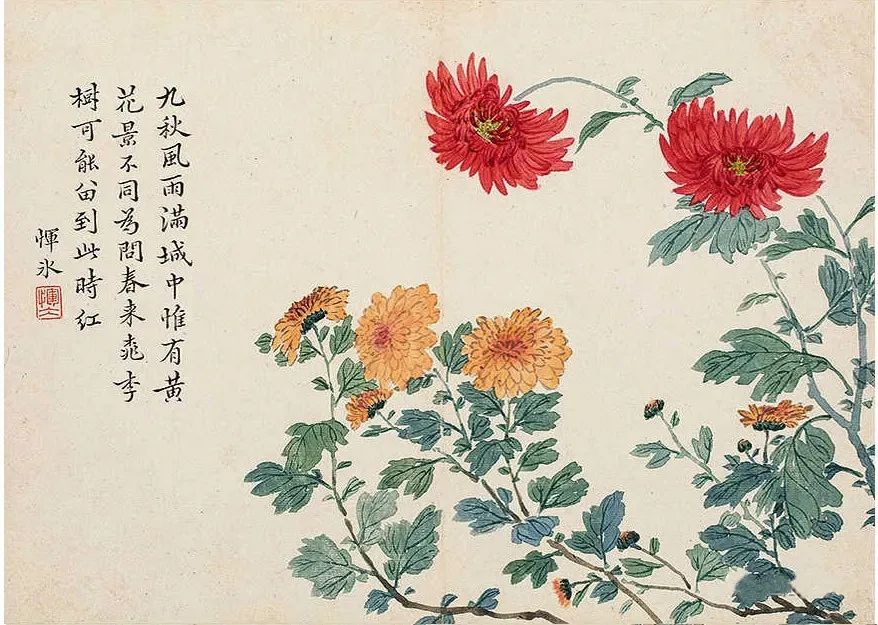 九秋風雨滿城中惟有黃
花景不同為問春来桃李
樹可能留到此時红
惲冰